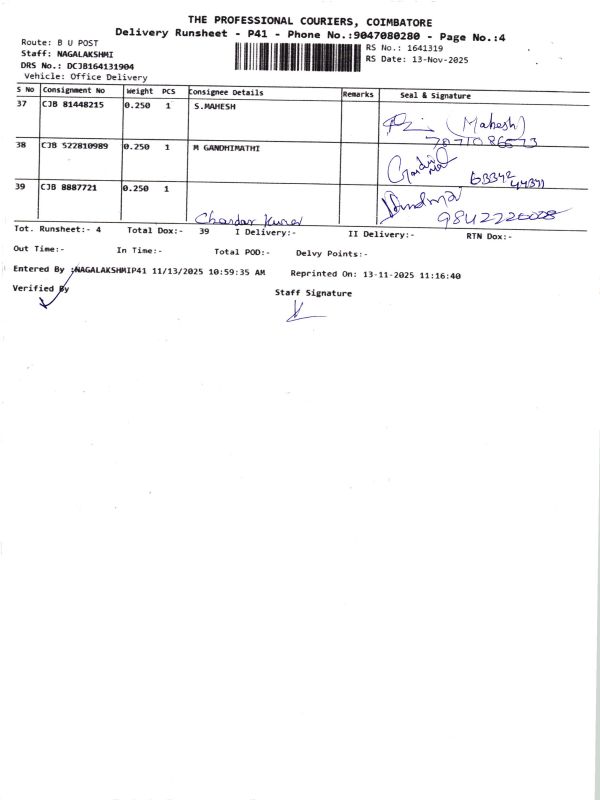 THE PROFESSIONAL COURIERS, COIMBATORE
Delivery Runsheet - P41 - Phone No.:9047080280 - Page No.:4
Route: B U POST
RS No.: 1641319
Staff: NAGALAKSHMI
RS Date: 13-Nov-2025
DRS No.: DCJB164131904
Vehicle: Office Delivery
S No Consignment No Weight PCS Consignee Details Remarks Seal & Signature
37 CJB 81448215 0.250 1 S.MAHESH
(Mahesh)
38 CJB 522810989 0.250 1 M GANDHIMATHI
39 CJB 8887721 0.250 1
Chandar Kumar
Tot. Runsheet:- 4 Total Dox:- 39 I Delivery:- II Delivery:- RTN Dox:-
Out Time:- In Time:- Total POD:- Delvy Points:-
Entered By :NAGALAKSHMIP41 11/13/2025 10:59:35 AM Reprinted On: 13-11-2025 11:16:40
Verified By
Staff Signature